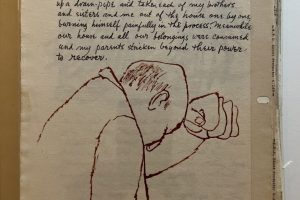 up a drain-pipe and taken each of my brothers
and sisters and me out of the house one by one
burning himself painfully in the process. Meanwhile
our house and all our belongings were consumed
and my parents stricken beyond their power
to recover.